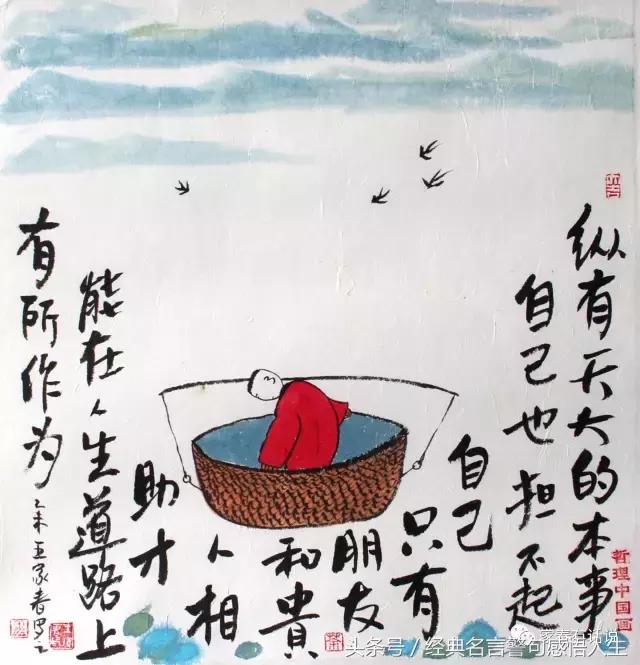 纵有天大的本事
自己也担不起
自己
只有
朋友
和貴
人相
助才
能在人生道路上
有所作为
乙未王家春
哲理中国画
家春有话说
头条号 / 经典名言警句感悟人生